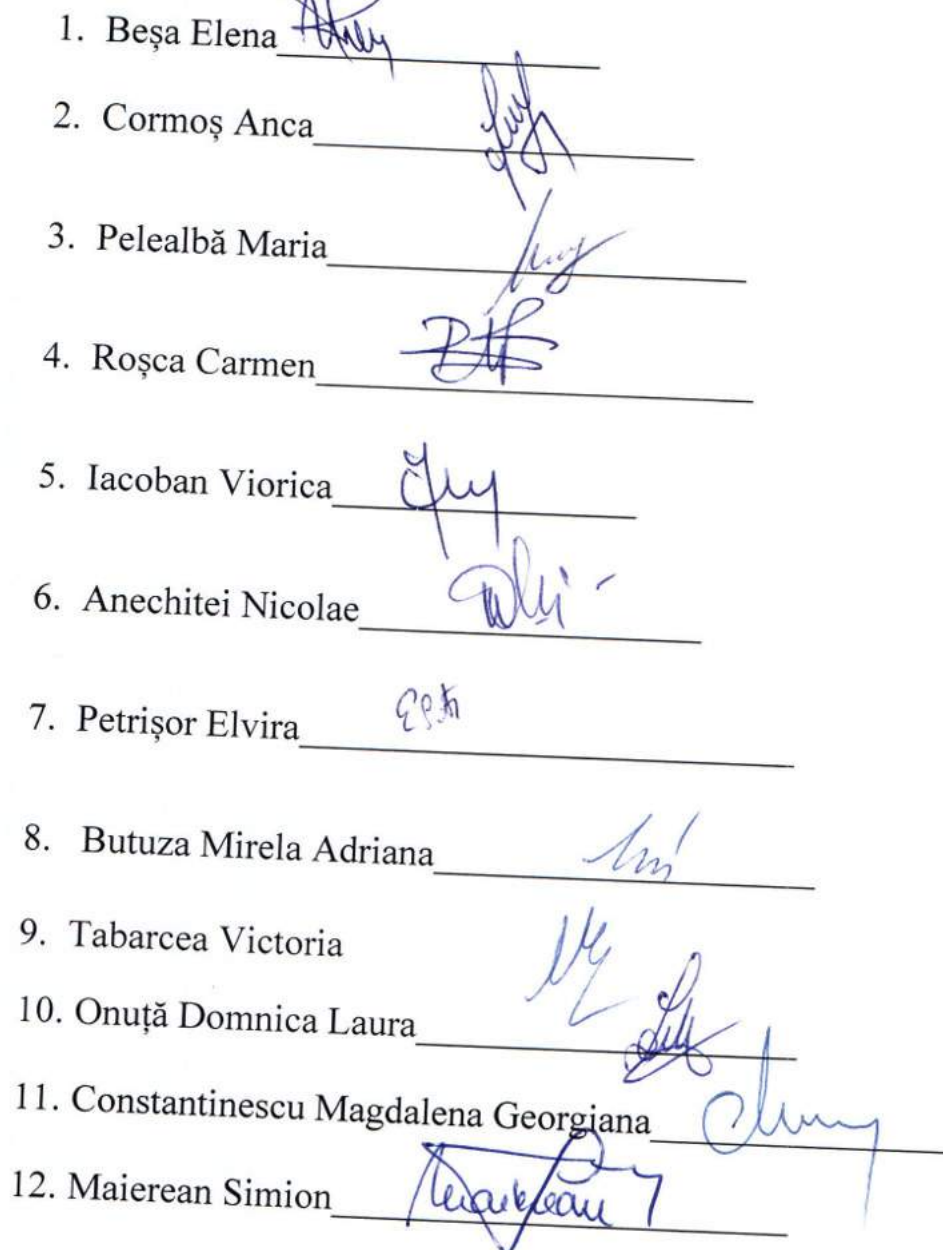 1. Beșa Elena
2. Cormoș Anca
3. Pelealbă Maria
4. Roșca Carmen
5. Iacoban Viorica
6. Anechitei Nicolae
7. Petrișor Elvira
8. Butuza Mirela Adriana
9. Tabarcea Victoria
10. Onuță Domnica Laura
11. Constantinescu Magdalena Georgiana
12. Maierean Simion